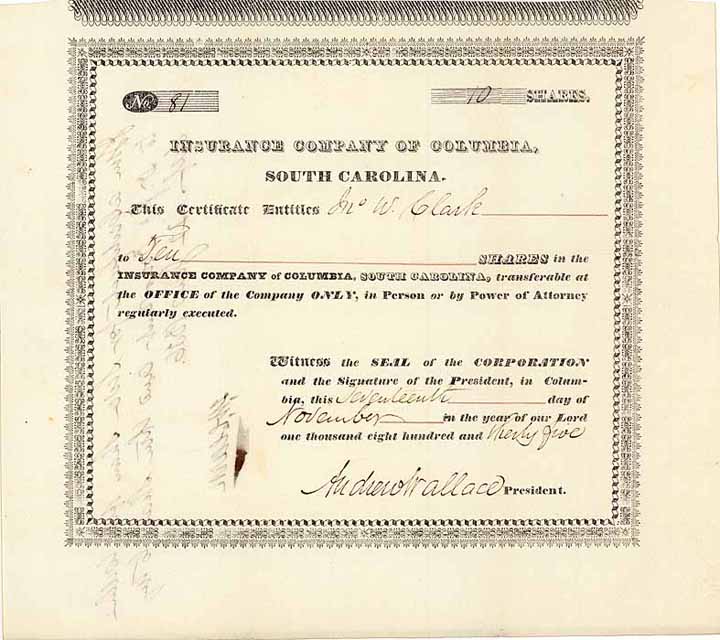 No. 81 10 SHARES.
INSURANCE COMPANY OF COLUMBIA,
SOUTH CAROLINA.
This Certificate Entitles Jno W. Clark
to Ten SHARES in the
INSURANCE COMPANY of COLUMBIA, SOUTH CAROLINA, transferable at
the OFFICE of the Company ONLY, in Person or by Power of Attorney
regularly executed.
Witness the SEAL of the CORPORATION
and the Signature of the President, in Colum-
bia, this Seventeenth day of
November in the year of our Lord
one thousand eight hundred and thirty five
Andrew Wallace President.